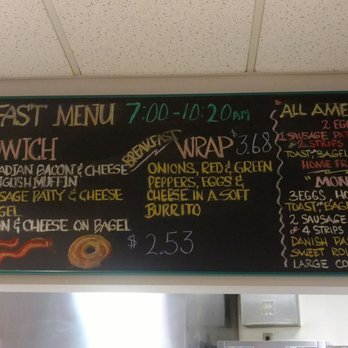 FAST MENU 7:00-10:20AM
WICH
ADIAN BACON & CHEESE
GLISH MUFFIN
SAGE PATTY & CHEESE
GEL
ON & CHEESE ON BAGEL
$2.53
BREAKFAST WRAP $3.68
ONIONS, RED & GREEN
PEPPERS, EGGS &
CHEESE IN A SOFT
BURRITO
ALL AME
2 EG
1 SAUSAGE PAT
2 STRIPS
TOAST BAGEL
HOME FR
MON
3 EGGS, HO
TOAST BAGEL
2 SAUSAGE
4 STRIPS
DANISH PAS
SWEET ROL
LARGE CO